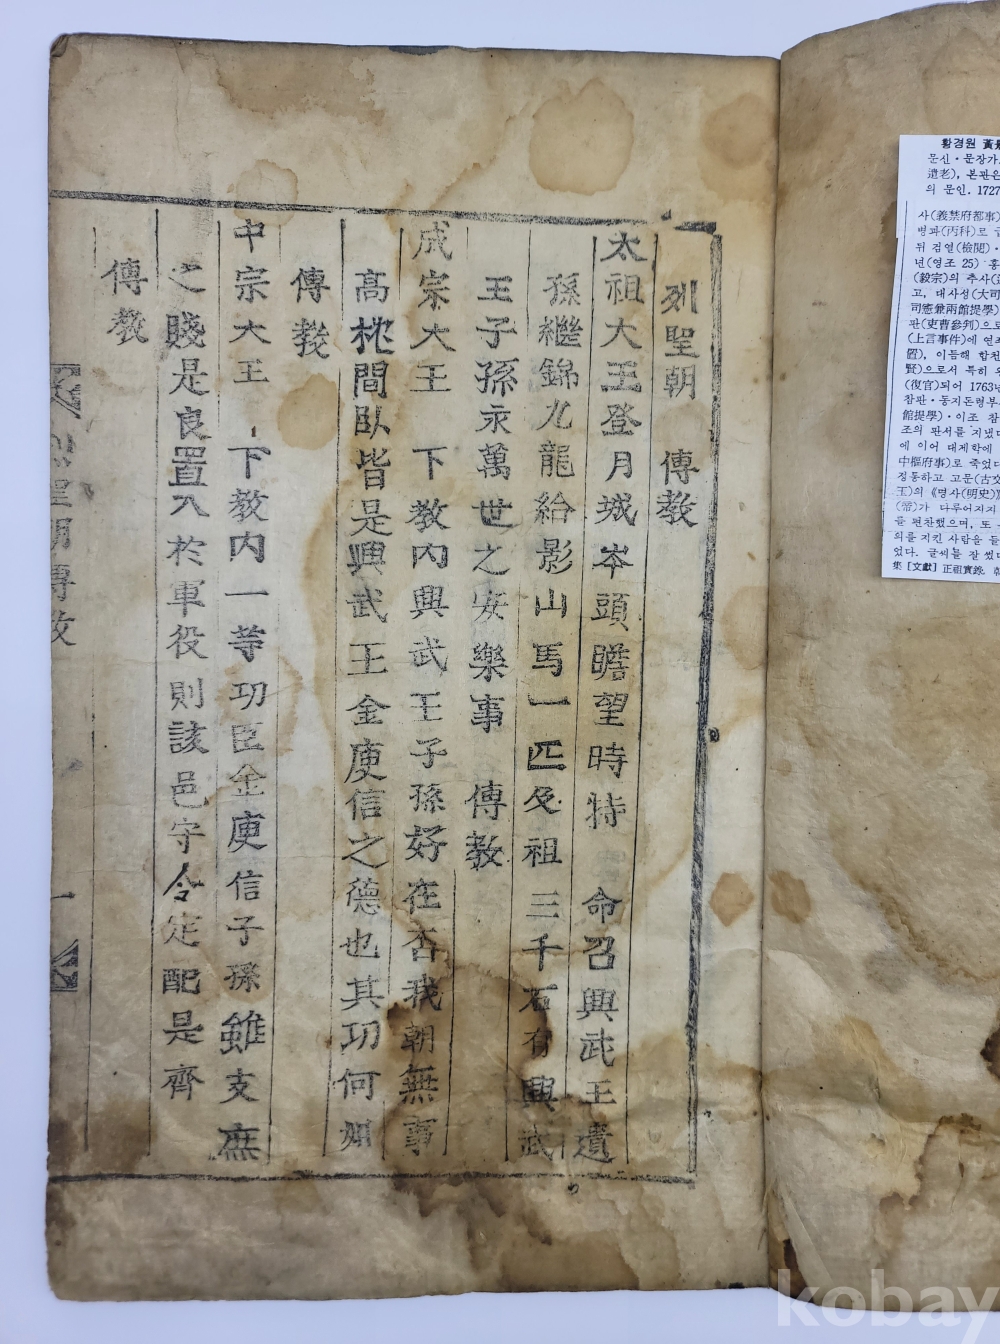 列聖朝 傳教
太祖大王登月城岑頭瞻望時特 命召興武王遺
孫繼錦九龍給影山馬一匹及祖三千石有興武
王子孫永萬世之安樂事 傳教
成宗大王 下教內興武王子孫好在否我朝無事
高枕間臥皆是興武王金庾信之德也其功何如
傳教
中宗大王 下教內一等功臣金庾信子孫雖支庶
之賤是良置入於軍役則該邑守令定配是齊
傳教
列聖朝傳教 一
황경원 黃
문신・문장가
遺老), 본관은
의 문인. 1727
사(義禁府都事)
병과(丙科)로 급
뒤 검열(檢閱)・
년(영조 25)
(毅宗)의 추사
고, 대사성(大司
司憲兼兩館提學)
판(吏曹參判)으로
(上言事件)에 연
置), 이듬해 합천
賢)으로서 특히
(復官)되어 1763년
참판・동지돈령부
館提學)・이조 참
조의 판서를 지냈다
에 이어 대제학에
中樞府事)로 죽었다
정통하고 고문(古文
王)의 《명사(明史)》
(帝)가 다루어지지
를 편찬했으며, 또
의를 지킨 사람을 들
었다. 글씨를 잘 썼다
集 [文獻] 正祖實錄
kobay